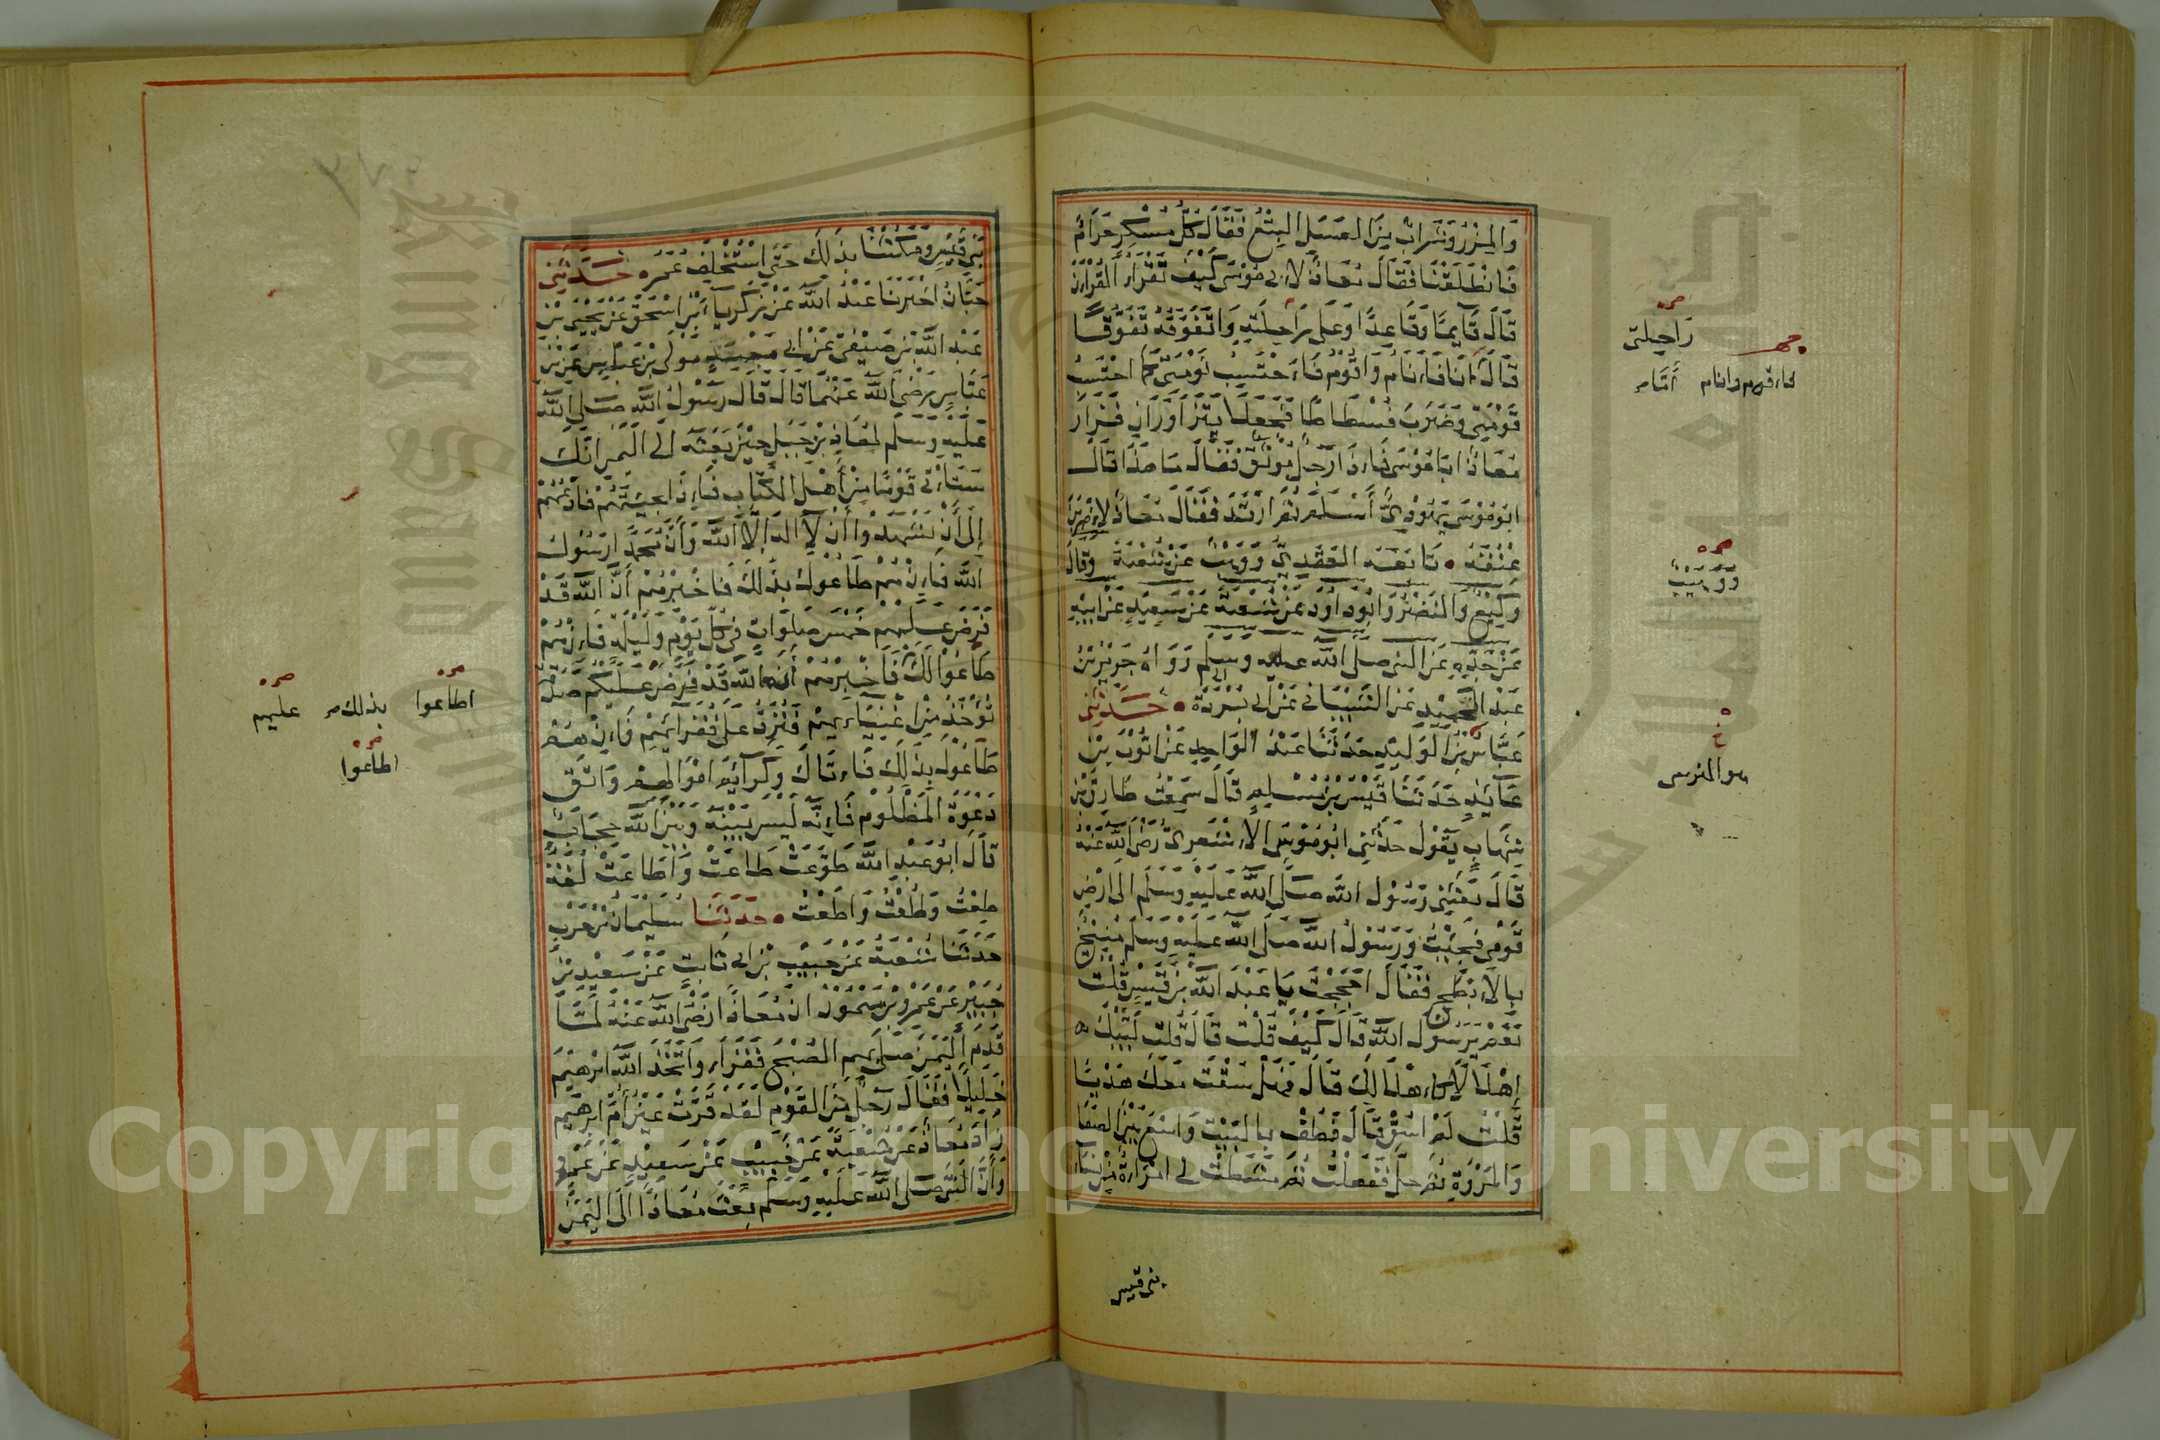 وَالمِزْرُ وَشَرابٌ مِنَ العسَلِ البِتْعُ فَقَالَ كُلُّ مُسْكِرٍ حَرَامٌ
فَانْطَلَقْنَا فَقَالَ مُعَاذٌ لِاَبى مُوْسَى كَيْفَ تَقْرَأُ القُرْاٰنَ
قَالَ قَآيِمًا وَقَاعِدًا وَعلى رَاحِلَتِهِ وَاَتَفَوَّقُهُ تَفَوُّقًا
قَالَ اَمَّا اَنَا فَاَنَامُ وَاَقُوْمُ فَاَحْتَسِبُ نَوْمَتِى كَمَا احْتَسِبُ
قَوْمَتِى وَضَرَبَ فُسْطَاطًا فَجَعَلَا يَتَزَاوَرَانِ فَزَارَ
مُعَاذٌ ابَا مُوْسَى فَاِذَا رَجُلٌ مُوْثَقٌ فَقَالَ مَا هذَا قَالَ
ابُو مُوْسَى يَهُوْدِىٌّ أَسْلَمَ ثُمَّ ارْتَدَّ فَقَالَ مُعَاذٌ لاَضْرِبَنَّ
عُنُقَهُ ٠ تَابَعَهُ العَقَدِىُّ وَوَهْبٌ عَنْ شُعْبَةَ وَقَالَ
وَكِيْعٌ وَالنَّضْرُ وَابُو دَاوُدَ عَنْ شُعْبَةَ عَنْ سَعِيْدٍ عَنْ اَبِيْهِ
عَنْ جَدِّهِ عَنِ النبى صلى اللّه عليه وسلم رَوَاهُ جَرِيْرُ بْنُ
عَبْدِ الحَمِيْدِ عَنِ الشَّيْبَانى عَنْ ابى بُرْدَةَ ٠ حَدَّثَنِى
عَبَّاسُ بْنُ الوَلِيْدِ حَدَثَنَا عَبْدُ الوَاحِدِ عَنْ اَيُّوْبَ بْنِ
عَآيِذٍ حَدَثَنَا قَيْسُ بْنُ مُسْلِمٍ قَالَ سَمِعْتُ طَارِقَ بْنَ
شِهَابٍ يَقُوْلُ حَدَّثَنِى ابُو مُوْسَى الاَشْعَرِىُّ رَضِىَ اللّه عَنْهُ
قَالَ بَعَثَنِى رَسُوْلُ اللّه صَلَّى اللّه عَلَيْهِ وَسَلَّم الى ارْضِ
قَوْمِى فَجِئْتُ وَرَسُوْلُ اللّه صَلى اللّه عَلَيْهِ وَسَلم مُنِيْخٌ
بالاَبْطَحِ فَقَالَ اَحَجَجْتَ يَا عَبْدَ اللّه بْنَ قَيْسٍ قُلْتُ
نَعَمْ يَرَسُوْلَ اللّه قَالَ كَيْفَ قُلْتَ قَالَ قُلْتُ لَبَّيْكَ
إِهْلَالًا كَاِهْلَالِكَ قَالَ فَهَلْ سُقْتَ مَعَكَ هَدْيًا
قُلْتُ لَمْ اَسُقْ قَالَ فَطُفْ بِالبَيْتِ وَاسْعَ بَيْنَ الصَّفَا
وَالمَرْوَةِ ثُمَّ حِلَّ فَفَعَلْتُ حَتى مَشَطَتْ لى امْرَاَةٌ مِنْ نِسَاءِ
بنى قيس
رَاحِلَتى
فاقوم وانام
أمَّا
وَوُهَيْبٌ
هو النرسى
بَنِى قَيْسٍ وَمَكَثْنَا بِذَلِكَ حَتَّى اسْتُخْلِفَ عُمَرُ ٠ حَدَّثَنِى
حِبَّانُ اَخْبَرَنَا عَبْدُ اللّه عَنْ زَكَرِيَّآ بْنِ اِسْحٰقَ عَنْ يَحْيَى بْنِ
عَبْدِ اللّه بْنِ صَيْفِىٍّ عَنْ ابى مَعْبَدٍ مَوْلى ابْنِ عَبَّاسٍ عَنِ ابْنِ
عَبَّاسٍ رَضِىَ اللّه عَنْهُمَا قَالَ قَالَ رَسُوْلُ اللّه صَلى اللّه
عَلَيْهِ وَسَلَّم لِمُعَاذِ بْنِ جَبَلٍ حِيْنَ بَعَثَهُ الَى اليَمَنِ اِنَّكَ
سَتَاْتِى قَوْمًا مِنْ أَهْلِ الكِتَابِ فَاِذَا جِئْتَهُمْ فَادْعُهُمْ
إِلَى أَنْ يَشْهَدُوْا أَنْ لَآ اِلَهَ اِلَّا اللّه وَأَنَّ مُحَمَّدًا رَسُوْلُ
اللّه فَاِنْ هُمْ طَاعُوْا لَكَ بِذَلِكَ فَاَخْبِرْهُمْ أَنَّ اللّه قَدْ
فَرَضَ عَلَيْهِمْ خَمْسَ صَلَوَاتٍ فى كُلِّ يَوْمٍ وَلَيْلَةٍ فَاِنْ هُمْ
طَاعُوْا لَكَ فَاَخْبِرْهُمْ أَنَّ اللّه قَدْ فَرَضَ عَلَيْكُمْ صَدَقَةً
تُؤْخَذُ مِنْ اَغْنِيَآءِهِمْ فَتُرَدُّ عَلَى فُقَرَآئِهِمْ فَاِنْ هُمْ
طَاعُوْا لَكَ بِذَلِكَ فَاِيَّاكَ وَكَرَآئِمَ امْوَالِهِمْ وَاتَّقِ
دَعْوَةَ المَظْلُوْمِ فَاِنَّهُ لَيْسَ بَيْنَهُ وَبَيْنَ اللّه حِجَابٌ
قَالَ اَبُو عَبْدِ اللّه طَوَّعَتْ طَاعَتْ وَاَطَاعَتْ لُغَةٌ
طِعْتُ وَطُعْتُ وَاَطَعْتُ ٠ حَدَثَنَا سُلَيْمَانُ بْنُ حَرْبٍ
حَدَثَنَا شُعْبَةُ عَنْ حَبِيْبِ بْنِ ابى ثَابِتٍ عَنْ سَعِيْدِ بْنِ
جُبَيْرٍ عَنْ عَمْرِو بْنِ مَيْمُوْنٍ انَّ مُعَاذًا رَضِىَ اللّه عَنْهُ لَمَّا
قَدِمَ اليَمَنَ صَلَّى بِهِم الصُّبْحَ فَقَرَاَ وَاتَّخَذَ اللّه ابْرٰهِيْمَ
خَلِيْلًا فَقَالَ رَجُلٌ مِنَ القَوْمِ لَقَدْ قَرَّتْ عَيْنُ أُمِّ ابْرٰهِيْمَ
زَادَ مُعَاذٌ عَنْ شُعْبَةَ عَنْ حَبِيْبٍ عَنْ سَعِيْدٍ عَنْ عَمْرٍو
أَنَّ النَّبِىَّ صَلى اللّه عَلَيْهِ وَسَلَّم بَعَثَ مُعَاذًا الَى اليَمَنِ
اطاعوا
بذلك
عليهم
اطاعوا
Copyright © King Saud University